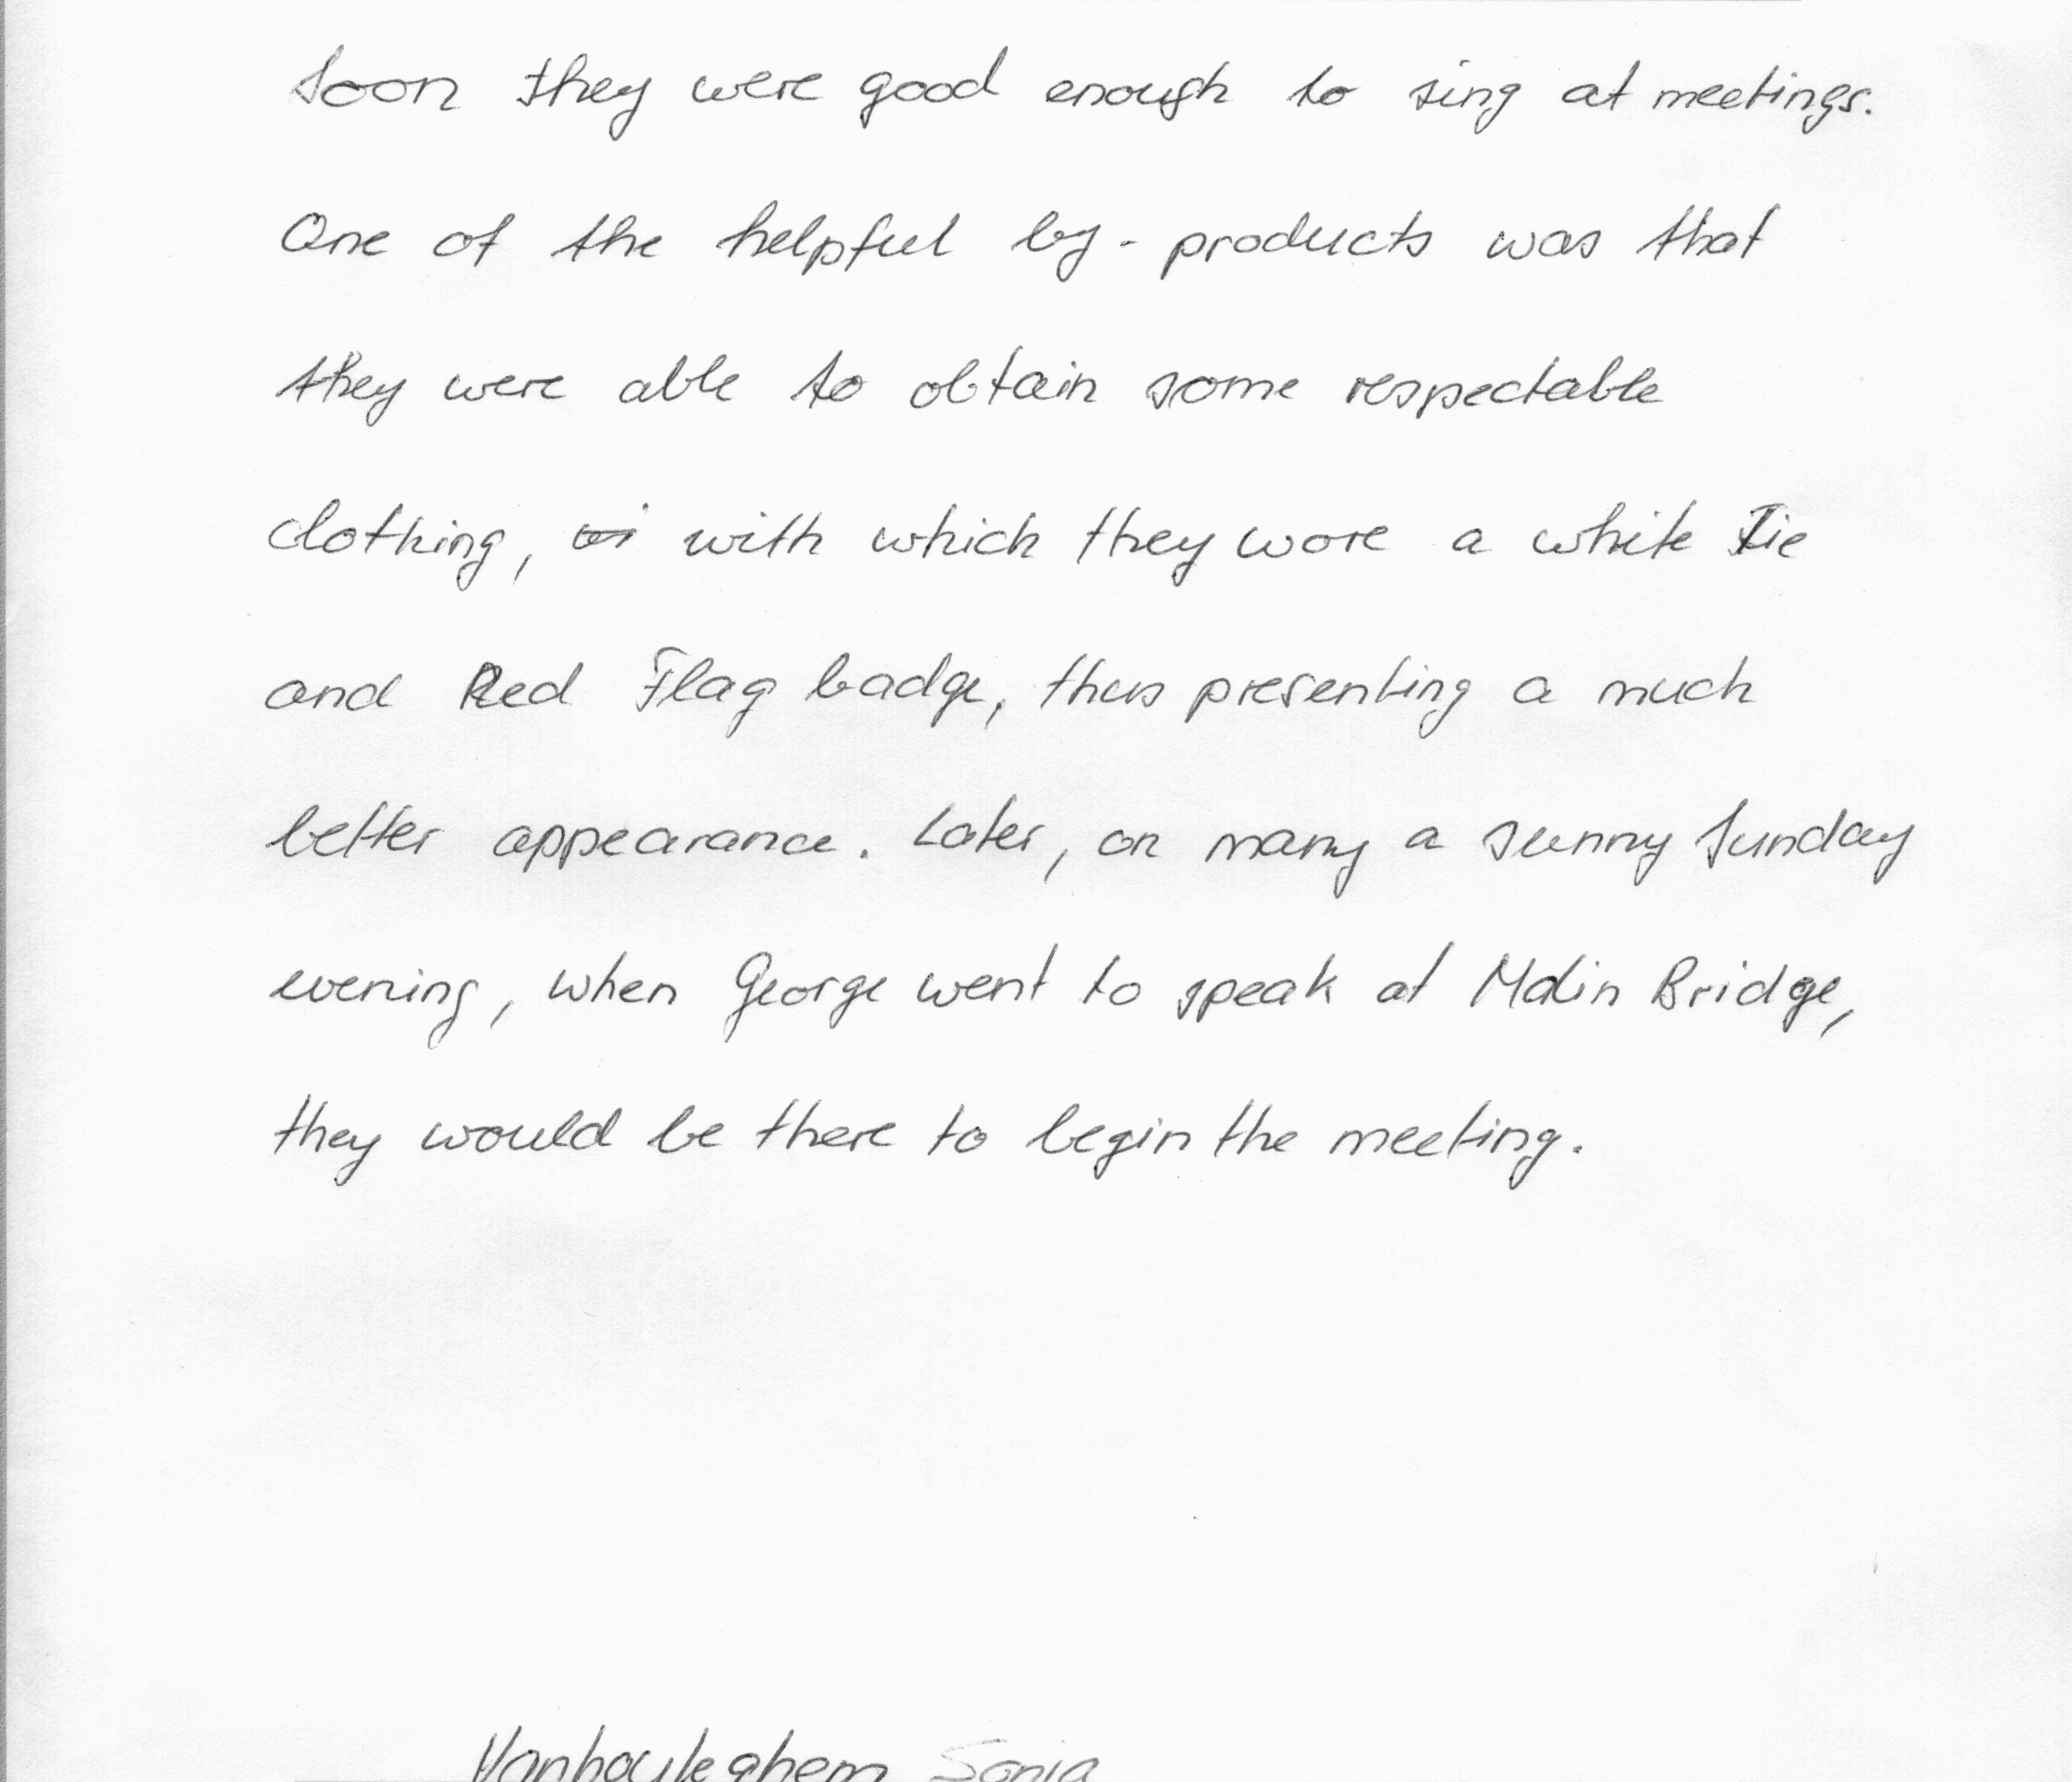 Soon they were good enough to sing at meetings.
One of the helpful by-products was that
they were able to obtain some respectable
clothing, with which they wore a white tie
and Red Flag badge, thus presenting a much
better appearance. Later, on many a sunny Sunday
evening, when George went to speak at Malin Bridge,
they would be there to begin the meeting.
Sonia